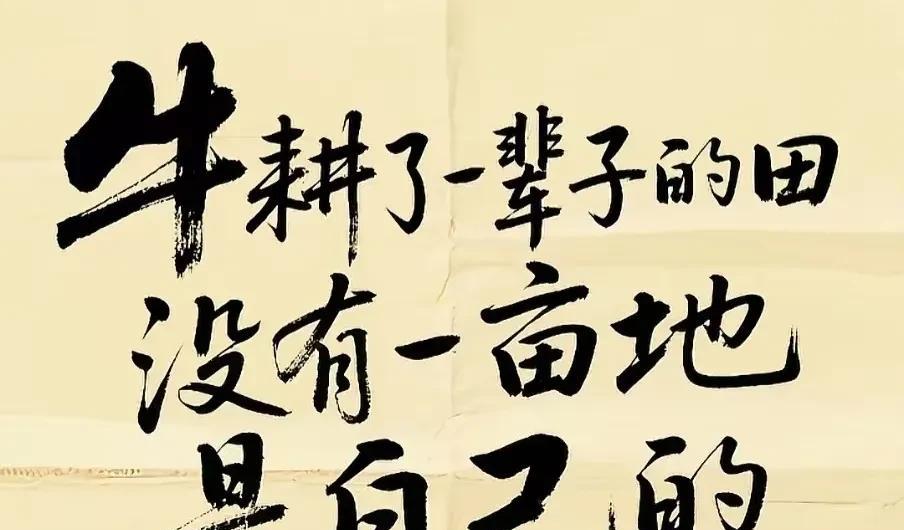 牛耕了一辈子的田
没有一亩地
是自己的